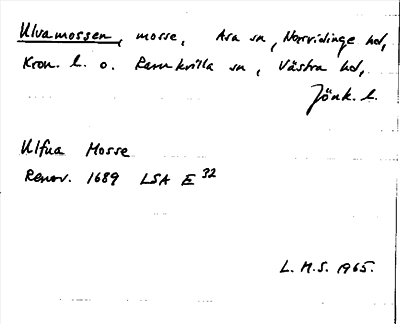 Ulvamossen, mosse, Asa sn, Norrvidinge hd,
Kron. l. o. Ramkvilla sn, Västra hd,
Jönk. l.
Ulfua Mosse
Renov. 1689 LSA E 32
L.M.S. 1965.